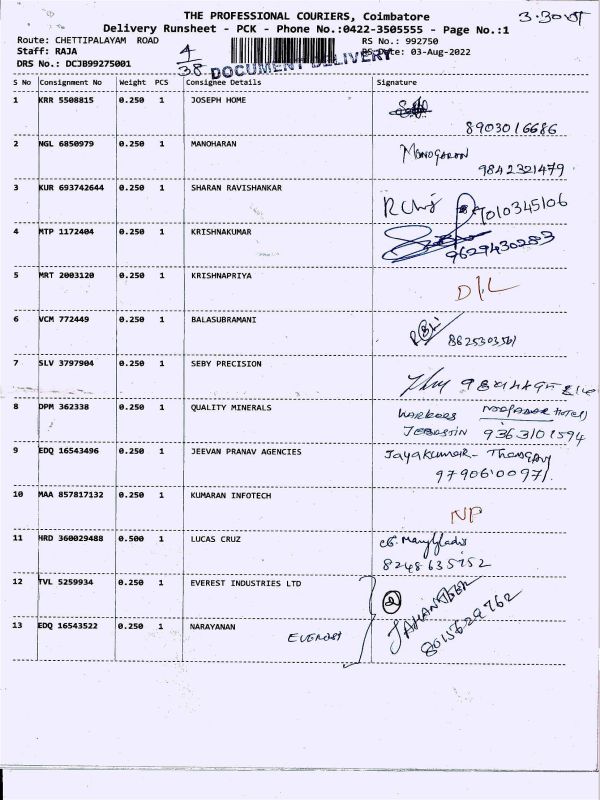 THE PROFESSIONAL COURIERS, Coimbatore
3.30
Delivery Runsheet - PCK - Phone No.:0422-3505555 - Page No.:1
Route: CHETTIPALAYAM ROAD
RS No.: 992750
Staff: RAJA
4/38
DOCUMENT DELIVERY
RS Date: 03-Aug-2022
DRS No.: DCJB99275001
S No Consignment No Weight PCS Consignee Details Signature
1 KRR 5508815 0.250 1 JOSEPH HOME
8903016686
2 NGL 6850979 0.250 1 MANOHARAN MANOGARAN
9842321479
3 KUR 693742644 0.250 1 SHARAN RAVISHANKAR
7010345106
4 MTP 1172404 0.250 1 KRISHNAKUMAR
9629430283
5 MRT 2003120 0.250 1 KRISHNAPRIYA
D/L
6 VCM 772449 0.250 1 BALASUBRAMANI
7 SLV 3797904 0.250 1 SEBY PRECISION
8 DPM 362338 0.250 1 QUALITY MINERALS
JEBASTIN 9363101594
9 EDQ 16543496 0.250 1 JEEVAN PRANAV AGENCIES Jayakumar-
9790600971
10 MAA 857817132 0.250 1 KUMARAN INFOTECH
NP
11 HRD 360029488 0.500 1 LUCAS CRUZ
8248635152
12 TVL 5259934 0.250 1 EVEREST INDUSTRIES LTD
2
13 EDQ 16543522 0.250 1 NARAYANAN
EVEREST
8015629762